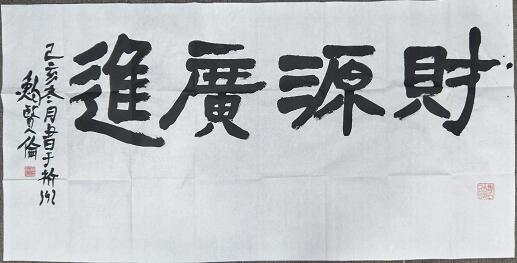 財源廣進
己亥冬月書于杭州
賢倫